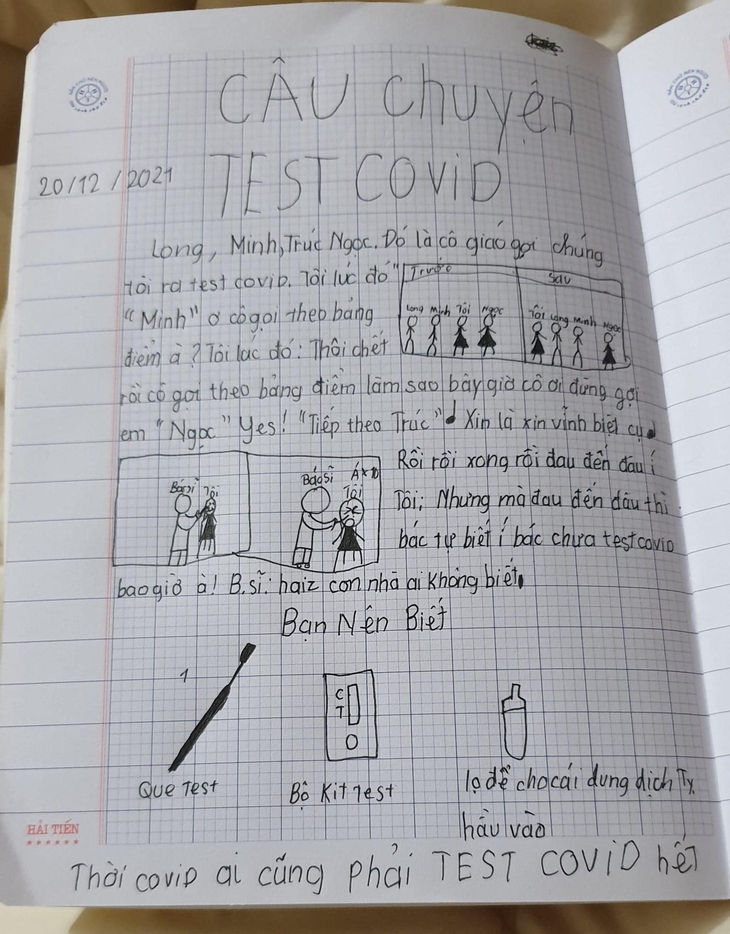 CÂU chuyện
20/12/2021 TEST COViD
Long, Minh, Trúc Ngọc. Đó là cô giáo gọi chúng
tôi ra test covid. Tôi lúc đó"
Trước
Sau
Long Minh Tôi Ngọc
Tôi Long Minh Ngọc
"Minh" ơ cô gọi theo bảng
điểm à? Tôi lúc đó: Thôi chết
rồi cô gọi theo bảng điểm làm sao bây giờ cô ơi đừng gọi
em "Ngọc" Yes! "Tiếp theo Trúc" Xin là xin vĩnh biệt cụ
Bác sĩ Tôi
Bác sĩ Á×10
Tôi
Rồi rồi xong rồi đau đến đâu í
Tôi; Nhưng mà đau đến đâu thì
bác tự biết í bác chưa test covid
bao giờ à! B.sĩ: haiz con nhà ai không biết.
Bạn Nên Biết
1
C
T
Que Test
Bộ Kit Test
lọ để cho cái dung dịch Tỵ
hầu vào
HẢI TIẾN
Thời covid ai cũng phải TEST COViD hết